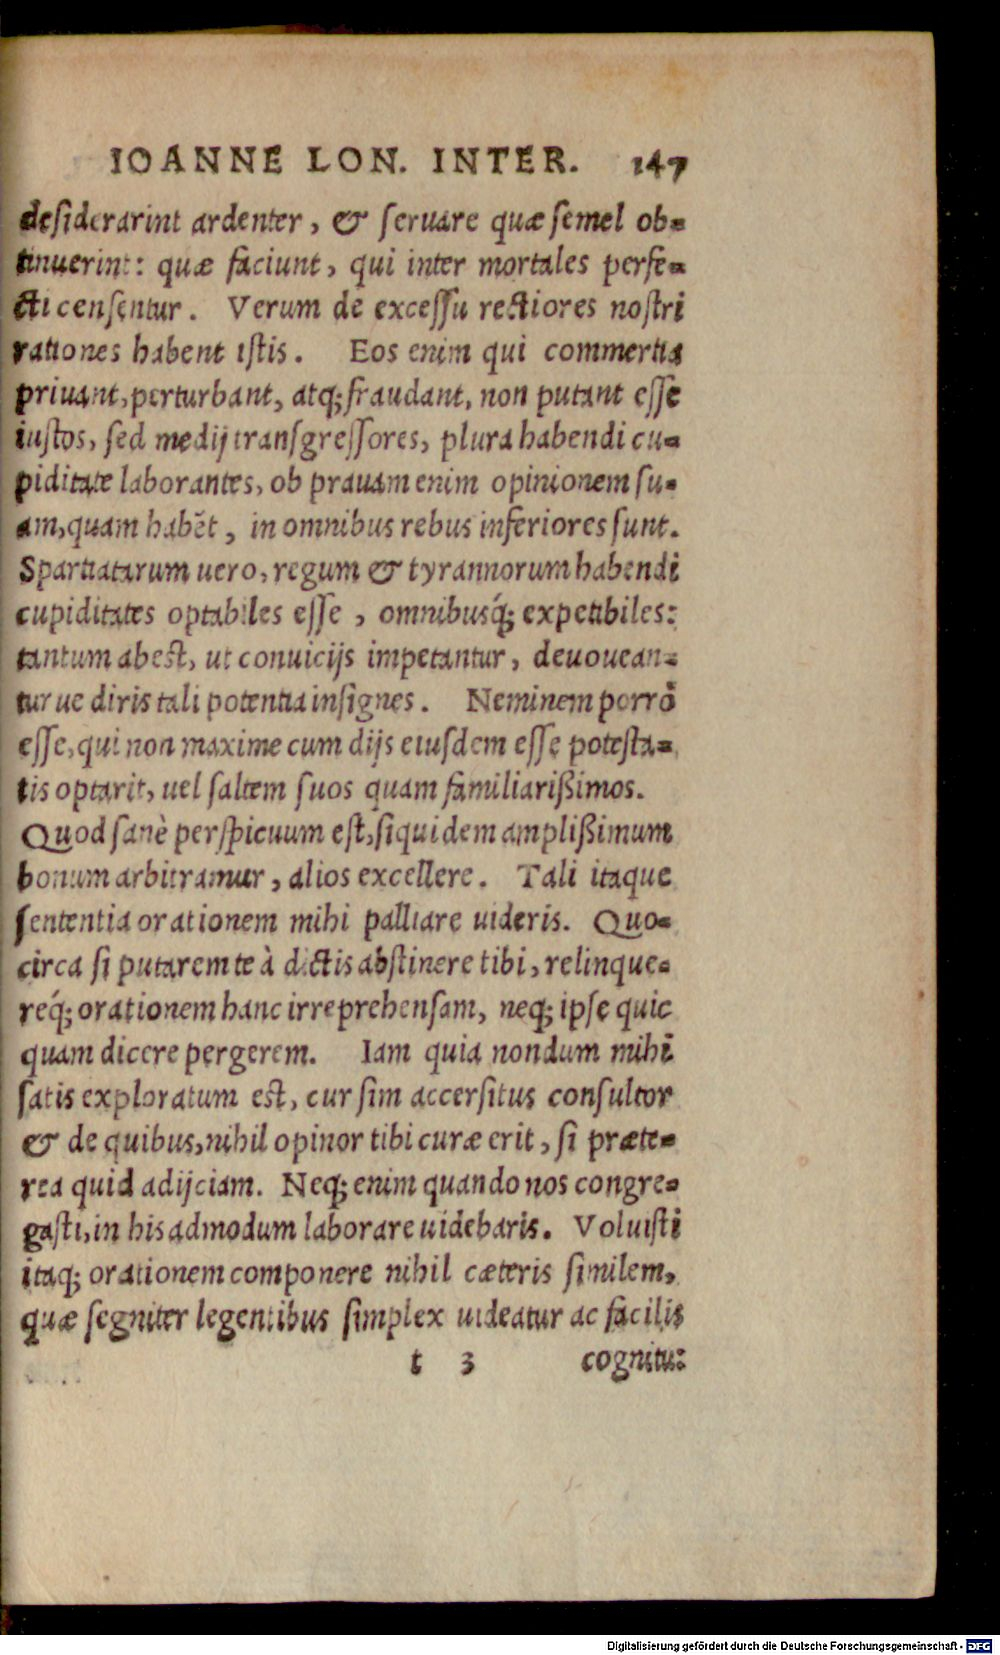 IOANNE LON. INTER. 147
desiderarint ardenter, & seruare quæ semel ob-
tinuerint: quæ faciunt, qui inter mortales perfe-
cti censentur. Verum de excessu rectiores nostri
rationes habent istis. Eos enim qui commertia
priuant, perturbant, atq; fraudant, non putant esse
iustos, sed medij transgressores, plura habendi cu-
piditate laborantes, ob prauam enim opinionem su-
am, quam habēt, in omnibus rebus inferiores sunt.
Spartiatarum uero, regum & tyrannorum habendi
cupiditates optabiles esse, omnibusq́; expetibiles:
tantum abest, ut conuicijs impetantur, deuouean-
tur ue diris tali potentia insignes. Neminem porrò
esse, qui non maxime cum dijs eiusdem esse potesta-
tis optarit, uel saltem suos quam familiarißimos.
Quod sanè perspicuum est, siquidem amplißimum
bonum arbitramur, alios excellere. Tali itaque
sententia orationem mihi palliare uideris. Quo-
circa si putarem te à dictis abstinere tibi, relinque-
req́; orationem hanc irreprehensam, neq; ipse quic
quam dicere pergerem. Iam quia nondum mihi
satis exploratum est, cur sim accersitus consultor
& de quibus, nihil opinor tibi curæ erit, si præte-
rea quid adijciam. Neq; enim quando nos congre-
gasti, in his admodum laborare uidebaris. Voluisti
itaq; orationem componere nihil cæteris similem,
quæ segniter legentibus simplex uideatur ac facilis
t 3 cognitu:
Digitalisierung gefördert durch die Deutsche Forschungsgemeinschaft - DFG